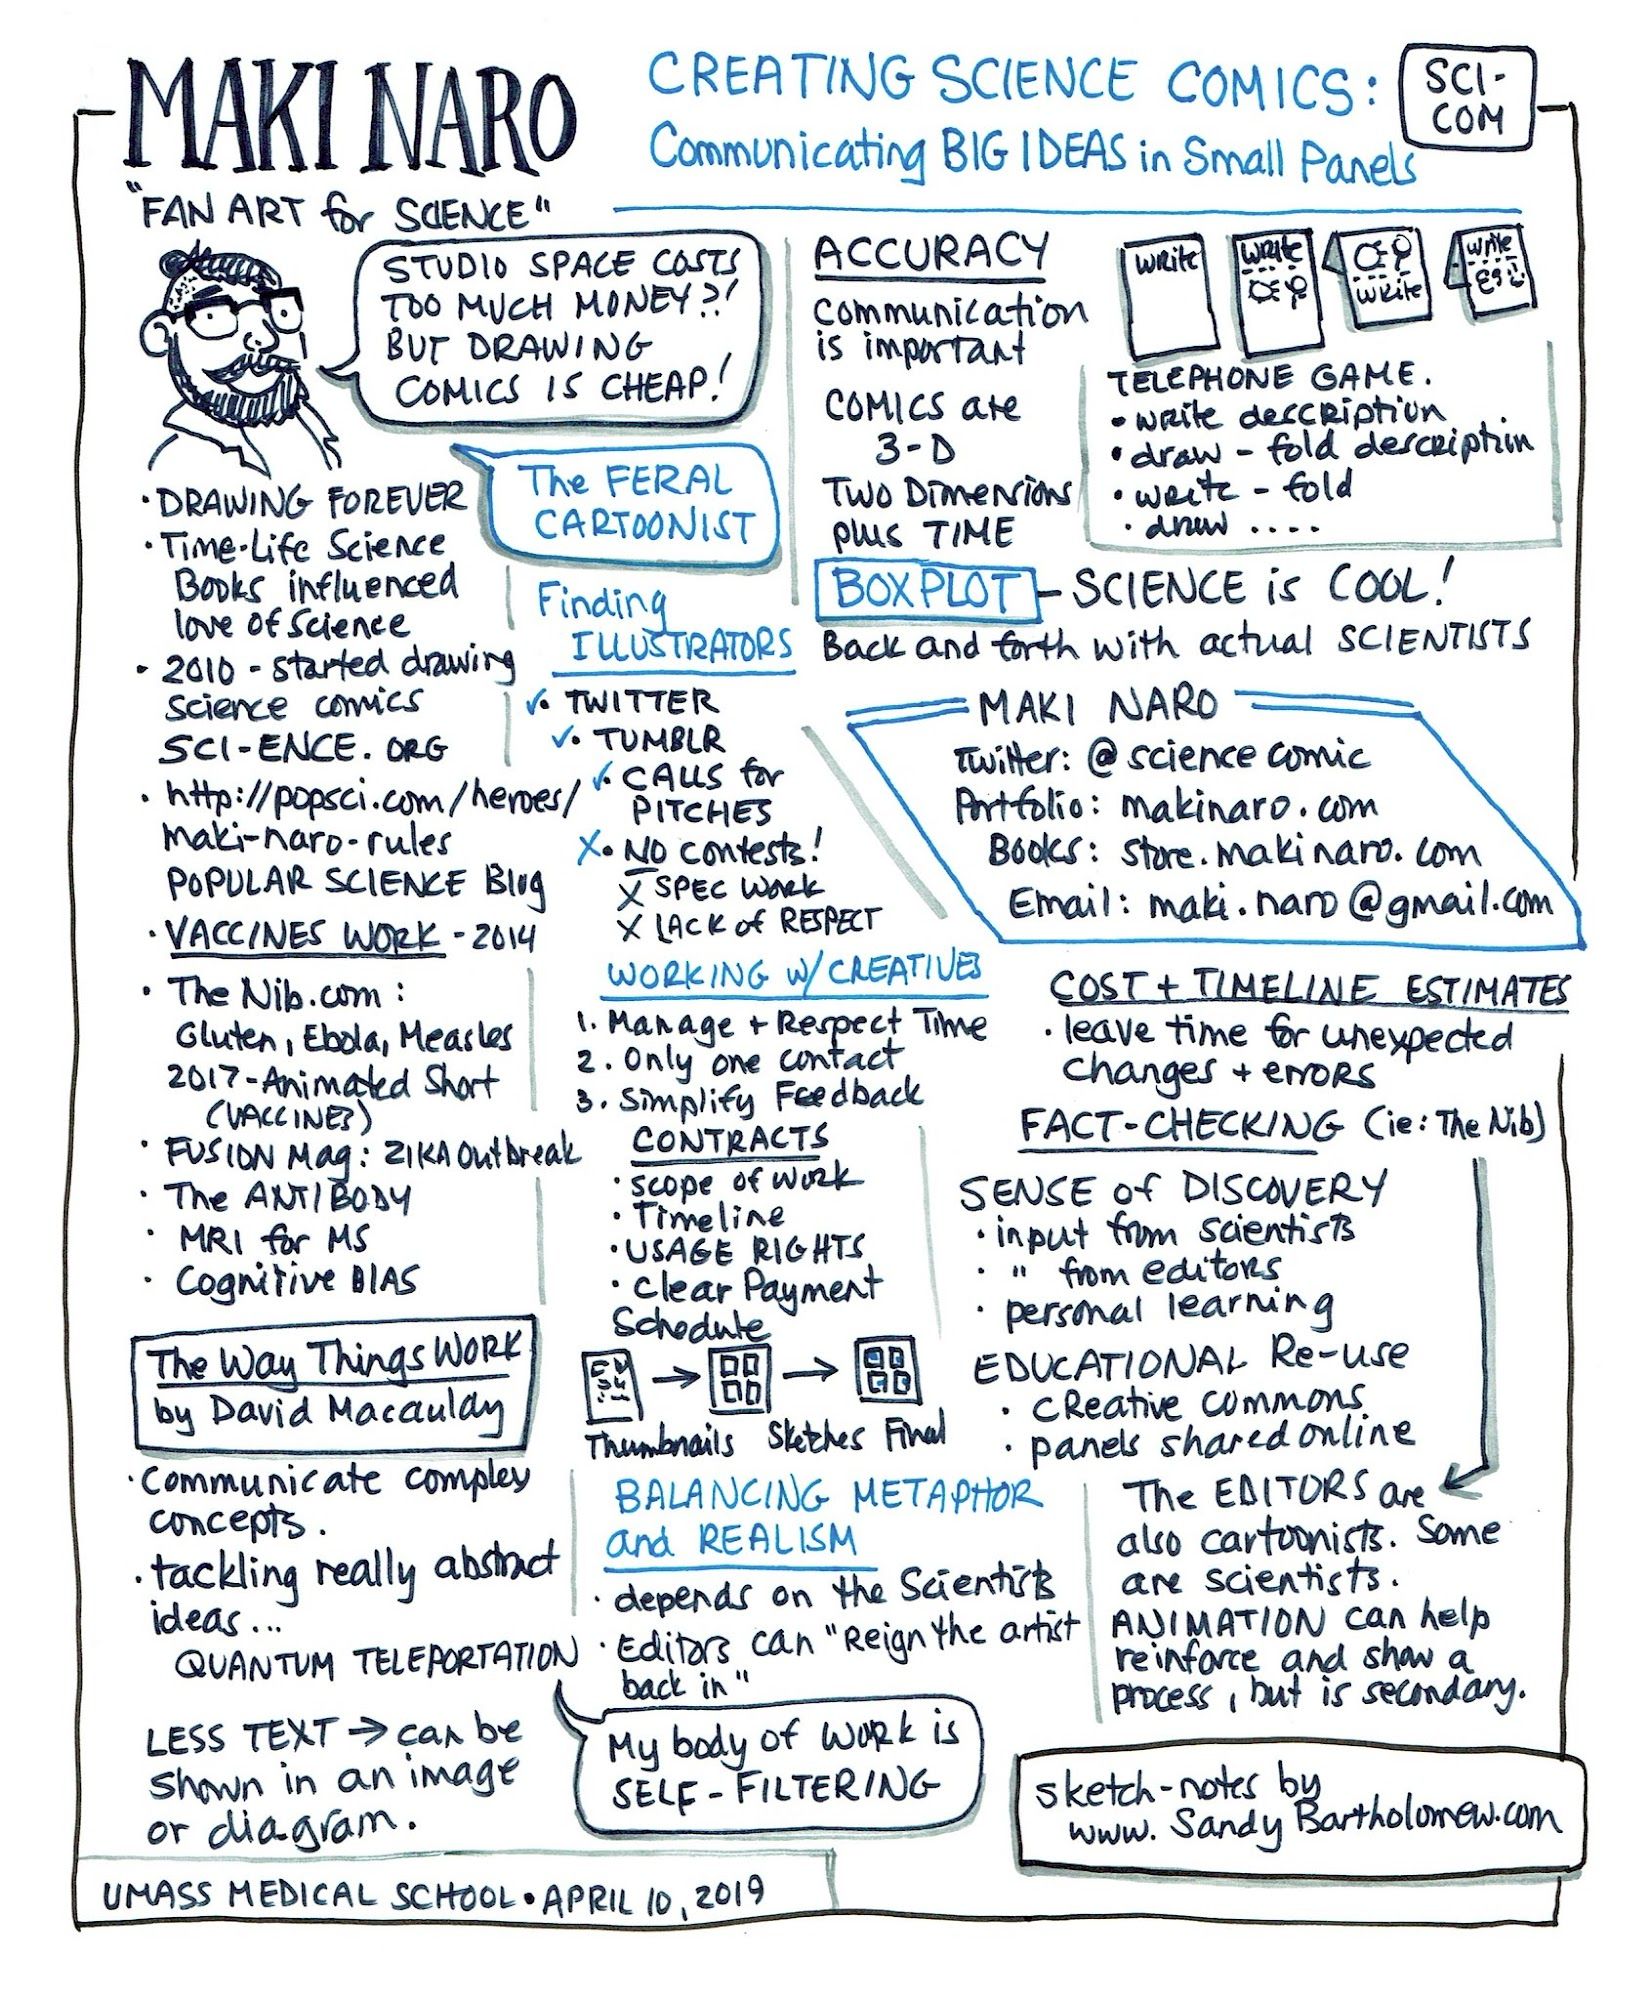 MAKI NARO
CREATING SCIENCE COMICS:
Communicating BIG IDEAS in Small Panels
SCI-
COM
"FAN ART for SCIENCE"
STUDIO SPACE COSTS
TOO MUCH MONEY?!
BUT DRAWING
COMICS IS CHEAP!
The FERAL
CARTOONIST
• DRAWING FOREVER
• Time-Life Science
Books influenced
love of Science
• 2010 - started drawing
science comics
SCI-ENCE.ORG
• http://popsci.com/heroes/
maki-naro-rules
POPULAR SCIENCE Blog
• VACCINES WORK - 2014
• The Nib.com:
Gluten, Ebola, Measles
2017 - Animated Short
(VACCINES)
• FUSION Mag: ZIKA Outbreak
• The ANTIBODY
• MRI for MS
• Cognitive BIAS
The Way Things WORK
by David Macaulday
• Communicate complex
concepts.
• tackling really abstract
ideas...
QUANTUM TELEPORTATION
LESS TEXT → can be
shown in an image
or diagram.
UMASS MEDICAL SCHOOL • APRIL 10, 2019
Finding
ILLUSTRATORS
✓• TWITTER
✓• TUMBLR
✓• CALLS for
PITCHES
X• NO contests!
X SPEC WORK
X LACK of RESPECT
WORKING W/ CREATIVES
1. Manage + Respect Time
2. Only one contact
3. Simplify Feedback
CONTRACTS
• scope of work
• Timeline
• USAGE RIGHTS
• Clear Payment
Schedule
Thumbnails Sketches Final
BALANCING METAPHOR
and REALISM
• depends on the Scientists
• Editors can "Reign the artist
back in"
My body of WORK is
SELF-FILTERING
ACCURACY
Communication
is important
COMICS are
3-D
TWO Dimensions
plus TIME
write
write
write
write
TELEPHONE GAME.
• write description
• draw - fold description
• write - fold
• draw ....
BOXPLOT - SCIENCE is COOL!
Back and forth with actual SCIENTISTS
MAKI NARO
Twitter: @sciencecomic
Portfolio: makinaro.com
Books: store.makinaro.com
Email: maki.naro@gmail.com
COST + TIMELINE ESTIMATES
• leave time for unexpected
changes + errors
FACT-CHECKING (ie: The Nib)
SENSE of DISCOVERY
• input from scientists
• " from editors
• personal learning
EDUCATIONAL Re-use
• Creative commons
• panels shared online
The EDITORS are
also cartoonists. Some
are scientists.
ANIMATION can help
reinforce and show a
process, but is secondary.
sketch-notes by
www.SandyBartholomew.com